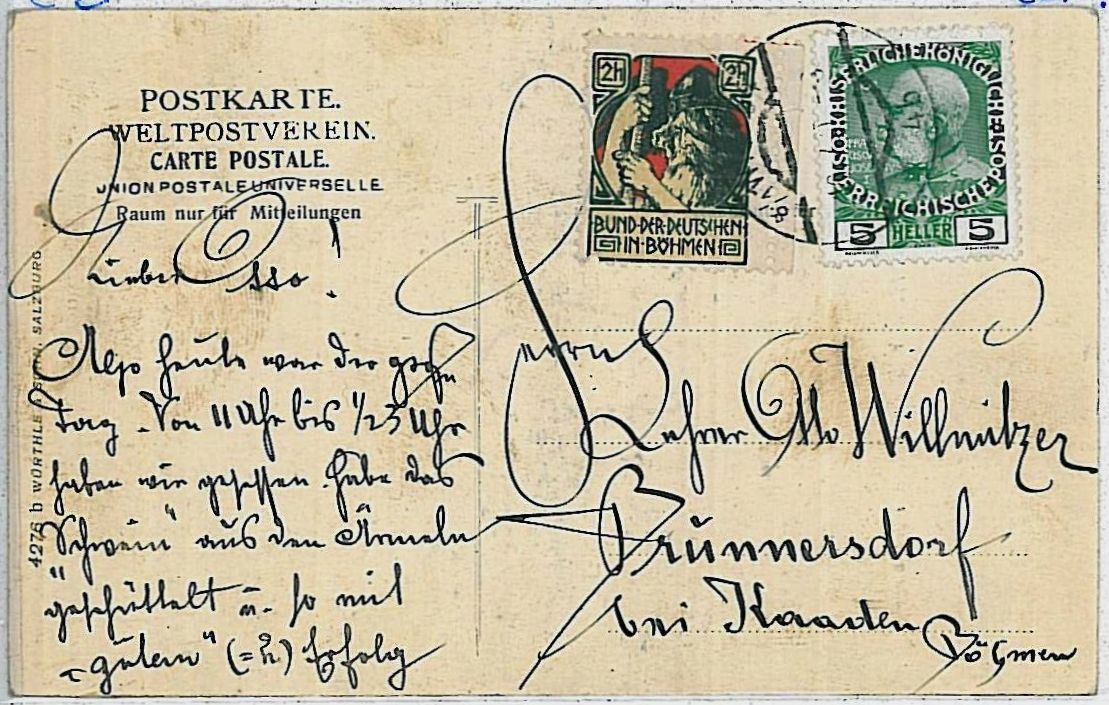 POSTKARTE.
WELTPOSTVEREIN.
CARTE POSTALE.
UNION POSTALE UNIVERSELLE
Raum nur für Mitteilungen
4276 b WÜRTHLE SALZBURG
2h 2h
BUND·DER·DEUTSCHEN
IN·BÖHMEN
KAISERLICHE KÖNIGLICHE ÖSTERREICHISCHE POST
5 HELLER 5
Lieber Otto!
Also heute war der große
Tag. Von 11 Uhr bis 1/2 5 Uhr
haben wir gesessen. Habe das
"Schwein" aus den Ärmeln
geschüttelt u. so mit
"gutem" (=2) Erfolg
Herrn
Lehrer Otto Willnitzer
Brünnersdorf
bei Kaaden
Böhmen